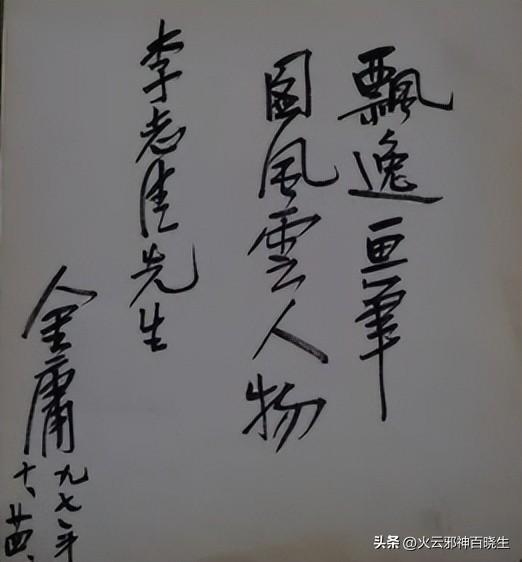 飄逸畫筆
圖風雲人物
李志清先生
金庸
九七、年
十、廿四、
头条 @火云邪神百晓生